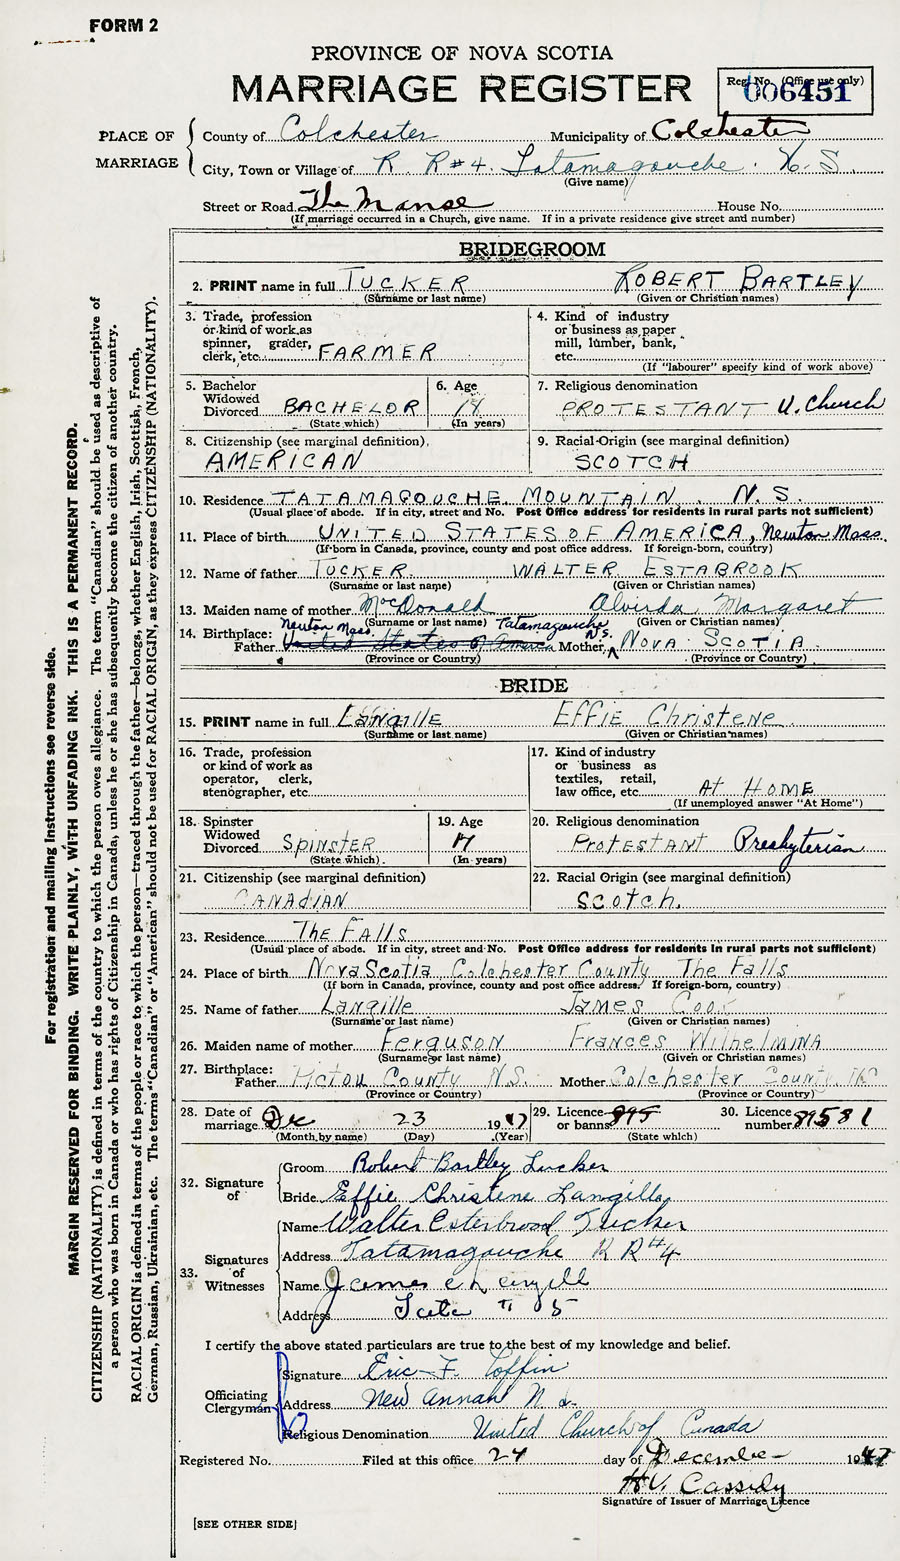 FORM 2
PROVINCE OF NOVA SCOTIA
MARRIAGE REGISTER
Reg. No. (Office use only)
006451
PLACE OF MARRIAGE
County of Colchester Municipality of Colchester
City, Town or Village of R. R#4. Tatamagouche. N.S.
(Give name)
Street or Road The Manse House No.
(If marriage occurred in a Church, give name. If in a private residence give street and number)
BRIDEGROOM
2. PRINT name in full TUCKER ROBERT BARTLEY
(Surname or last name) (Given or Christian names)
3. Trade, profession or kind of work as spinner, grader, clerk, etc. FARMER
4. Kind of industry or business as paper mill, lumber, bank, etc.
(If "labourer" specify kind of work above)
5. Bachelor Widowed Divorced BACHELOR
(State which)
6. Age
(In years)
7. Religious denomination
PROTESTANT U. Church
8. Citizenship (see marginal definition).
AMERICAN
9. Racial Origin (see marginal definition)
SCOTCH
10. Residence TATAMAGOUCHE MOUNTAIN N.S.
(Usual place of abode. If in city, street and No. Post Office address for residents in rural parts not sufficient)
11. Place of birth UNITED STATES OF AMERICA, Newton Mass.
(If born in Canada, province, county and post office address. If foreign-born, country)
12. Name of father TUCKER WALTER ESTABROOK
(Surname or last name) (Given or Christian names)
13. Maiden name of mother McDonald Alvirda Margaret
(Surname or last name) (Given or Christian names)
Newton Mass. Tatamagouche N.S.
14. Birthplace: Father United States of America Mother NOVA SCOTIA
(Province or Country) (Province or Country)
BRIDE
15. PRINT name in full Langille EFFIE Christene
(Surname or last name) (Given or Christian names)
16. Trade, profession or kind of work as operator, clerk, stenographer, etc.
17. Kind of industry or business as textiles, retail, law office, etc. At HOME
(If unemployed answer "At Home")
18. Spinster Widowed Divorced SPINSTER
(State which).
19. Age
(In years)
20. Religious denomination
PROTESTANT Presbyterian
21. Citizenship (see marginal definition)
CANADIAN
22. Racial Origin (see marginal definition)
Scotch.
23. Residence THE FALLS
(Usual place of abode. If in city, street and No. Post Office address for residents in rural parts not sufficient)
24. Place of birth Nova Scotia Colchester County The Falls
(If born in Canada, province, county and post office address. If foreign-born, country)
25. Name of father Langille James Cook
(Surname or last name) (Given or Christian names)
26. Maiden name of mother Ferguson Frances WilhelMINA
(Surname or last name) (Given or Christian names)
27. Birthplace: Father Pictou County N.S. Mother Colchester County
(Province or Country) (Province or Country)
28. Date of marriage Dec 23 19
(Month by name) (Day) (Year)
29. Licence or banns
(State which)
30. Licence number 89581
32. Signature of
Groom Robert Bartley Tucker
Bride Effie Christene Langille
33. Signatures of Witnesses
Name Walter Esterbrood Tucker
Address Tatamagouche R R #4
Name James C Langill
Address
I certify the above stated particulars are true to the best of my knowledge and belief.
Officiating Clergyman
Signature Eric F. Coffin
Address New Annan N.S.
Religious Denomination United Church of Canada
Registered No. Filed at this office 24 day of December 1947
H.V. Cassidy
Signature of Issuer of Marriage Licence
[SEE OTHER SIDE]
For registration and mailing instructions see reverse side.
MARGIN RESERVED FOR BINDING. WRITE PLAINLY, WITH UNFADING INK. THIS IS A PERMANENT RECORD.
CITIZENSHIP (NATIONALITY) is defined in terms of the country to which the person owes allegiance. The term "Canadian" should be used as descriptive of
a person who was born in Canada or who has rights of Citizenship in Canada, unless he or she has subsequently become the citizen of another country.
RACIAL ORIGIN is defined in terms of the people or race to which the person—traced through the father—belongs, whether English, Irish, Scottish, French,
German, Russian, Ukrainian, etc. The terms "Canadian" or "American" should not be used for RACIAL ORIGIN, as they express CITIZENSHIP (NATIONALITY).